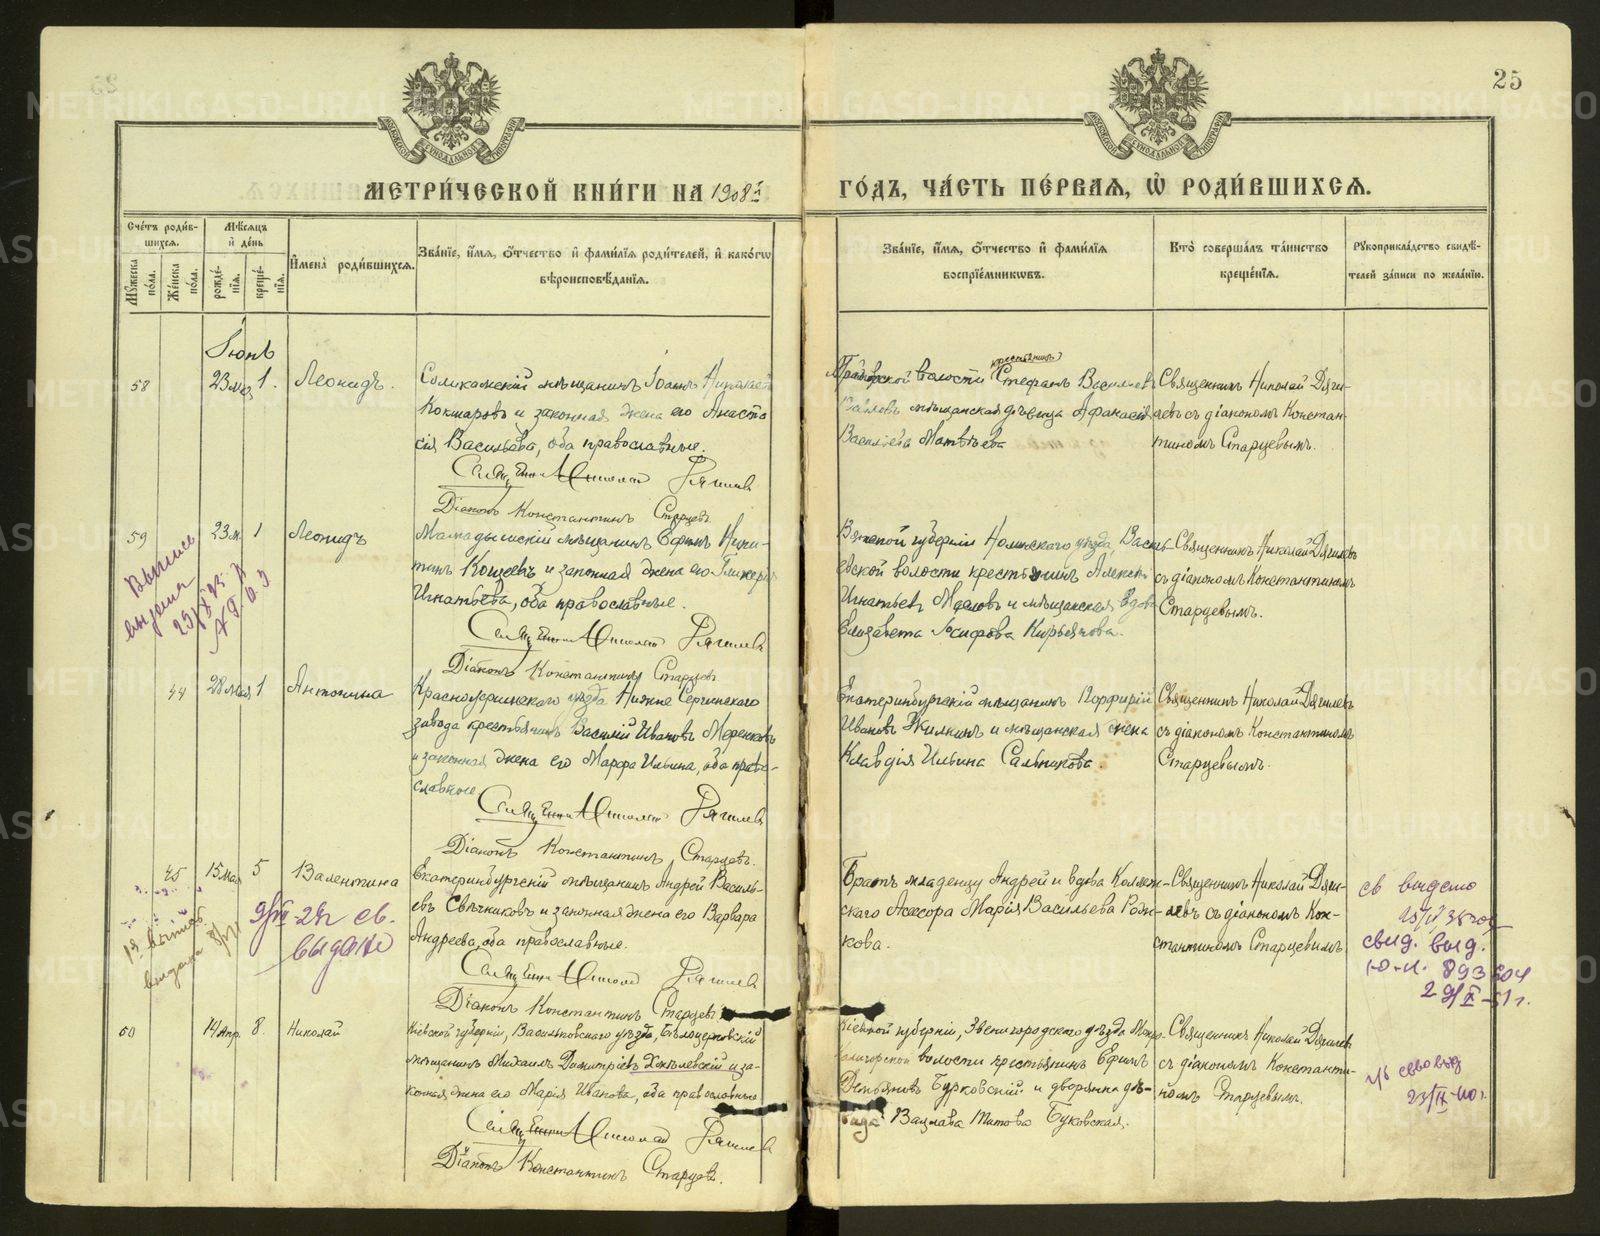 25
МЕТРИ́ЧЕСКОЙ КНИ́ГИ НА 1908й
ГО́ДЪ, ЧА́СТЬ ПЕ́РВАЯ, Ѿ РОДИ́ВШИХСЯ.
Сче́тъ роди́в-
шихся.
Мѣ́сяцъ
и҆ де́нь
Мꙋ́жеска по́ла.
Же́нска по́ла.
рожде́-
нїя.
креще́-
нїя.
И҆мена̀ роди́вшихся.
Зва́нїе, и҆́мя, ѻ҆́тчество и҆ фамѝлїя роди́телей, и҆ како́гѡ
вѣроисповѣ́данїя.
Зва́нїе, и҆́мя, ѻ҆́тчество и҆ фамѝлїя
воспрїе́мникѡвъ.
Кто̀ соверша́лъ та́инство
креще́нїя.
Рꙋкоприкла́дство свидѣ́-
телей за́писи по жела́нїю.
Іюнь
58
23 мая
1.
Леонидъ.
Соликамскій мѣщанинъ Іоаннъ Николаевъ
Кокшаровъ и законная жена его Анаста
сія Васильева, оба православные.
Священникъ Николай Дягилевъ
Діаконъ Константинъ Старцевъ
волости крестьянинъ Стефанъ Васильевъ
мѣщанская дѣвица Афанасія
Васильева Матвѣева
Священникъ Николай Дяги-
левъ съ діакономъ Констан-
тиномъ Старцевымъ.
59
23 м.
1
Леонидъ
Мамадышскій мѣщанинъ Ефимъ Ники-
тинъ Кощеевъ и законная жена его Гликерія
Игнатьева, оба православные.
Священникъ Николай Дягилевъ
Діаконъ Константинъ Старцевъ
Вятской губерніи Нолинскаго уѣзда, Василь-
евской волости крестьянинъ Алексѣй
Игнатьевъ и мѣщанская вдова
Елизавета Іосифова Кирьянова.
Священникъ Николай Дягилевъ
съ діакономъ Константиномъ
Старцевымъ.
Выпись
выдана
44
28 мая
1
Антонина
Красноуфимскаго уѣзда Нижне Сергинскаго
завода крестьянинъ Василій Ивановъ Меренковъ
и законная жена его Марфа Ильина, оба право-
славные
Священникъ Николай Дягилевъ
Діаконъ Константинъ Старцевъ.
Екатеринбургскій мѣщанинъ Порфирій
Ивановъ Жилкинъ и мѣщанская жена
Клавдія Ильина Сальникова.
Священникъ Николай Дягилевъ
съ діакономъ Константиномъ
Старцевымъ.
45
15 мая
5
Валентина
Екатеринбургскій мѣщанинъ Андрей Василь-
евъ Свѣчниковъ и законная жена его Варвара
Андреева, оба православные.
Священникъ Николай Дягилевъ
Діаконъ Константинъ Старцевъ
Братъ младенцу Андрей и вдова Коллеж-
скаго Асессора Марія Васильева Роди-
кова.
Священникъ Николай Дяги-
левъ съ діакономъ Кон-
стантиномъ Старцевымъ
св.
выдано
св выдано
свид. выд.
60
14 Апр.
8.
Николай
Кіевской губерніи, Васильковскаго уѣзда, Бѣлоцерковскій
мѣщанинъ Михаилъ Димитріевъ и за-
конная жена его Марія Иванова, оба православные
Священникъ Николай Дягилевъ
Діаконъ Константинъ Старцевъ.
Кіевской губерніи, Звенигородскаго уѣзда
волости крестьянинъ Ефимъ
Демьяновъ Бурковскій и дворянка дѣ-
вица Вацлава Титова Буковская.
Священникъ Николай Дягилевъ
съ діакономъ Константи-
номъ Старцевымъ.
METRIKI.GASO-URAL.RU